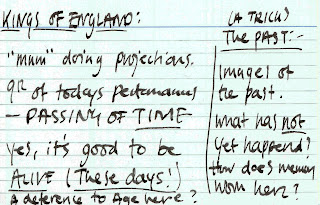 KINGS OF ENGLAND:
"mum" doing projections.
of todays Performances
- PASSING OF TIME
Yes, it's good to be
ALIVE (These days!)
A deference to Age here?
(A TRICK)
The PAST:-
Images of
the past.
What has not
yet happened?
How does memory
work here?